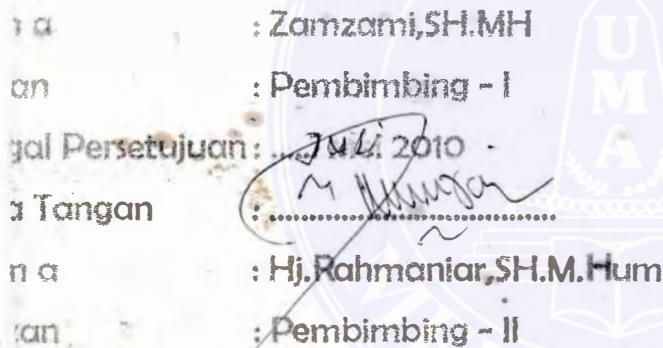 a : Zamzami,SH.MH
an : Pembimbing - I
gal Persetujuan : ..... Juli 2010
a Tangan : ..............................
n a : Hj.Rahmaniar,SH.M.Hum
an : Pembimbing - II
UMA